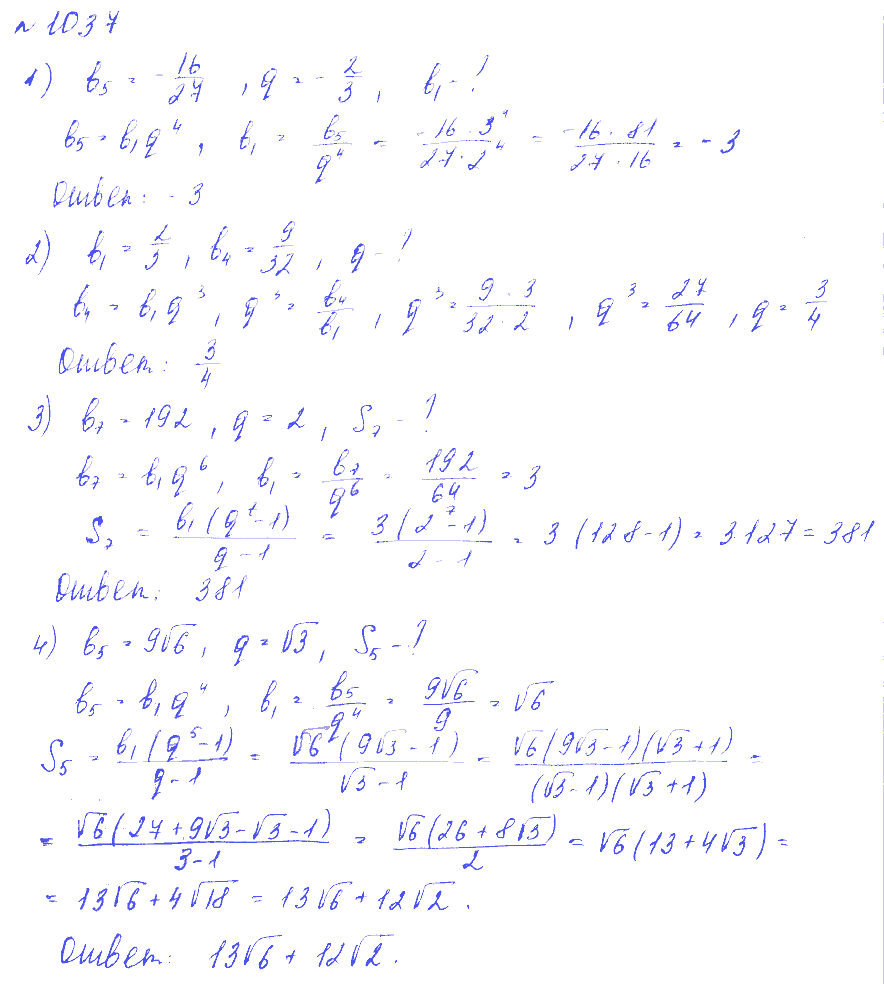 № 1037
1) b₅ = -16/27, q = -2/3, b₁ - ?
b₅ = b₁q⁴, b₁ = b₅/q⁴ = (-16·3⁴)/(27·2⁴) = (-16·81)/(27·16) = -3
Ответ: -3
2) b₁ = 2/3, b₄ = 9/32, q - ?
b₄ = b₁q³, q³ = b₄/b₁, q³ = (9·3)/(32·2), q³ = 27/64, q = 3/4
Ответ: 3/4
3) b₇ = 192, q = 2, S₇ - ?
b₇ = b₁q⁶, b₁ = b₇/q⁶ = 192/64 = 3
S₇ = b₁(q⁷-1)/(q-1) = 3(2⁷-1)/(2-1) = 3(128-1) = 3·127 = 381
Ответ: 381
4) b₅ = 9√6, q = √3, S₅ - ?
b₅ = b₁q⁴, b₁ = b₅/q⁴ = 9√6/9 = √6
S₅ = b₁(q⁵-1)/(q-1) = √6(9√3-1)/(√3-1) = √6(9√3-1)(√3+1)/((√3-1)(√3+1)) =
= √6(27+9√3-√3-1)/(3-1) = √6(26+8√3)/2 = √6(13+4√3) =
= 13√6+4√18 = 13√6+12√2.
Ответ: 13√6+12√2.